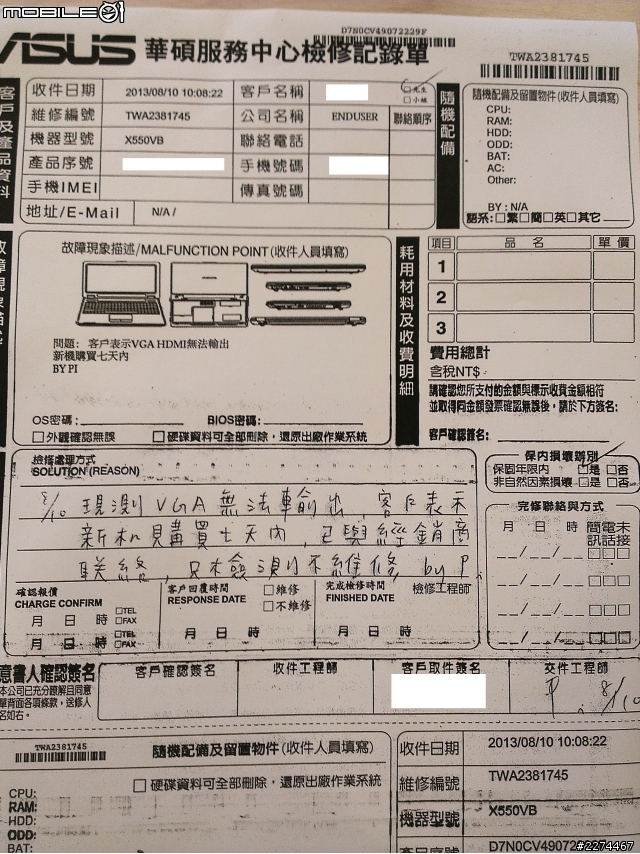 MOBILE01
D7N0CV49072229F
ASUS 華碩服務中心檢修記錄單
TWA2381745
客戶及產品資料
收件日期 2013/08/10 10:08:22 客戶名稱 □先生
□小姐
維修編號 TWA2381745 公司名稱 ENDUSER 聯絡順序
機器型號 X550VB 聯絡電話
產品序號 手機號碼
手機IMEI 傳真號碼
地址/E-Mail N/A /
隨機配備
隨機配備及留置物件(收件人員填寫)
CPU:
RAM:
HDD:
ODD:
BAT:
AC:
Other:
BY : N/A
語系:□繁□簡□英□其它
故障現象描述/MALFUNCTION POINT(收件人員填寫)
問題: 客戶表示VGA HDMI無法輸出
新機購買七天內
BY PI
OS密碼: BIOS密碼:
□外觀確認無誤 □硬碟資料可全部刪除,還原出廠作業系統
耗用材料及收費明細
項目 品名 單價
1
2
3
費用總計
含稅NT$
請確認您所支付的金額與標示收費金額相符
並取得同金額發票確認無誤後,請於下方簽名:
客戶確認簽名:
檢修處理方式
SOLUTION (REASON)
8/10 現測VGA無法輸出,客戶表示
新机購買七天內,已與經銷商
联絡,只檢測不維修 by P.
保內損壞辨別
保固年限內 □是 □否
非自然因素損壞 □是 □否
完修聯絡與方式
月 日 時 簡訊 電話 未接
確認報價
CHARGE CONFIRM
月 日 時 □TEL
□FAX
月 日 時 □TEL
□FAX
客戶回覆時間 □維修
RESPONSE DATE □不維修
月 日 時
完成檢修時間
FINISHED DATE
月 日 時
檢修工程師
意書人確認簽名
本公司已充分瞭解且同意
單背面各項條款,送修人
名如右。
客戶確認簽名 收件工程師 客戶取件簽名 交件工程師
P. 8/10
TWA2381745
隨機配備及留置物件(收件人員填寫)
CPU:
RAM:
HDD:
ODD:
BAT:
□硬碟資料可全部刪除,還原出廠作業系統
收件日期 2013/08/10 10:08:22
維修編號 TWA2381745
機器型號 X550VB
產品序號 D7N0CV49072229F
#2274467